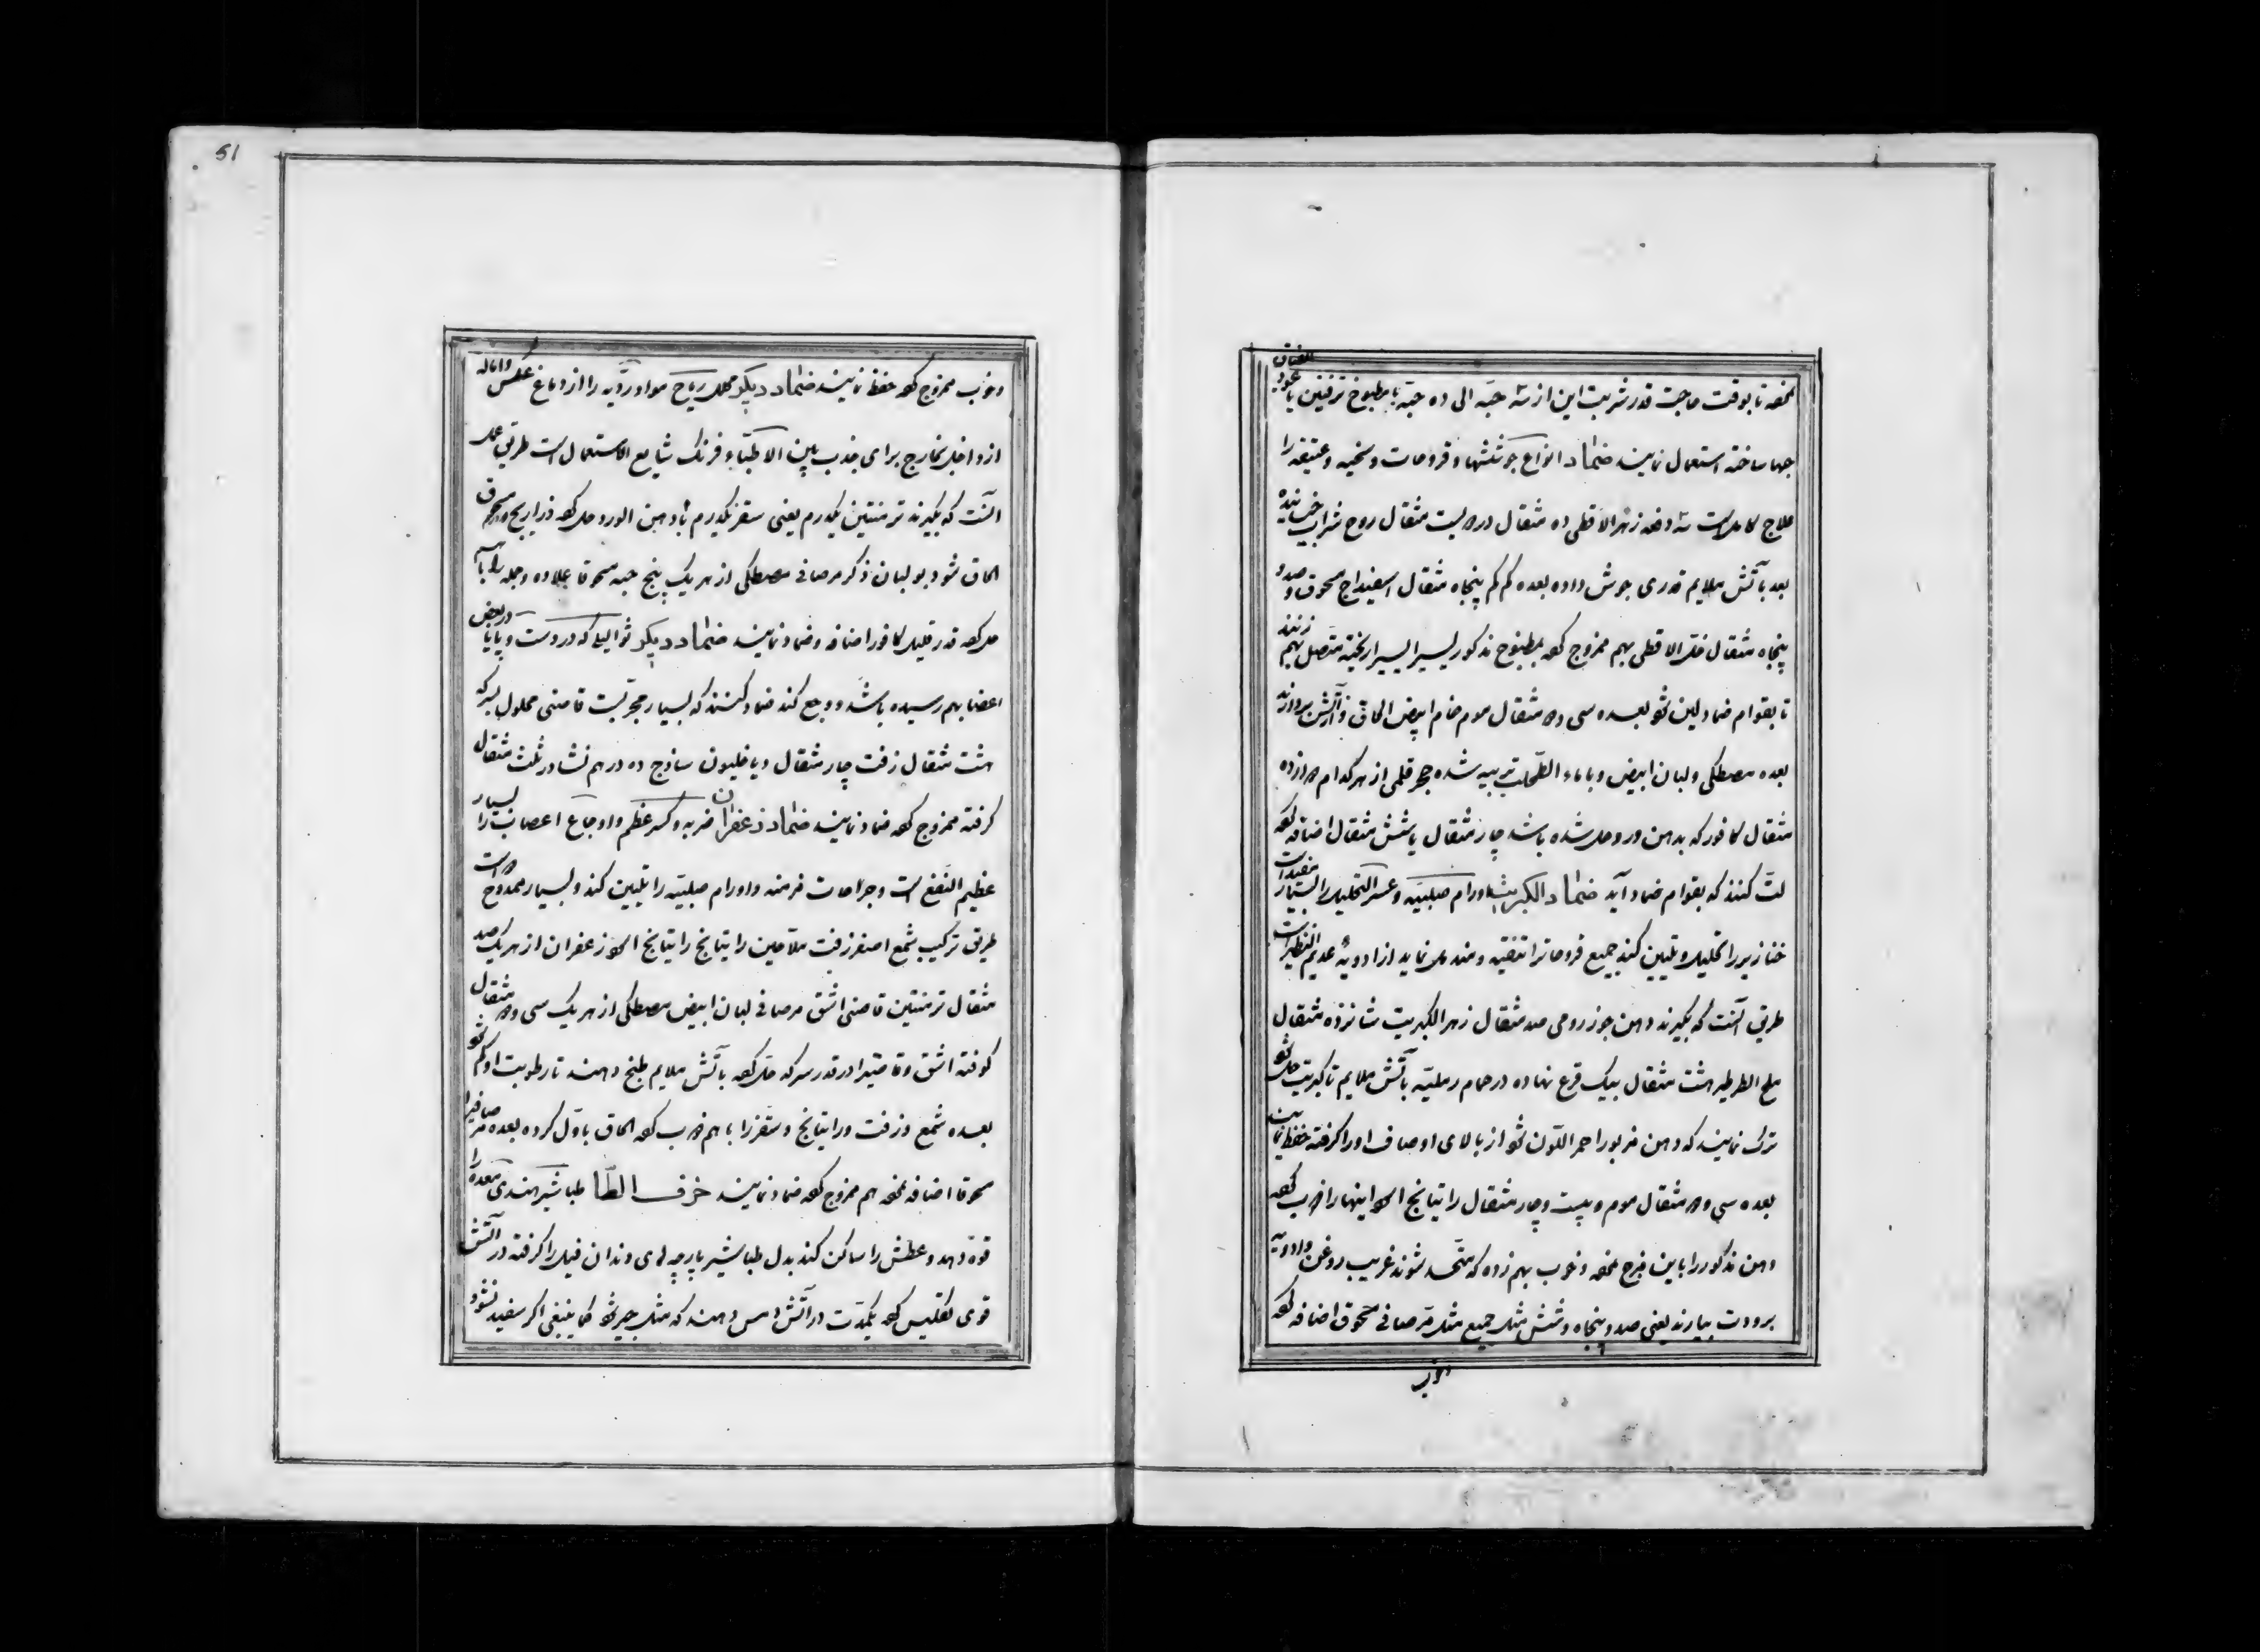 نموده تا بوقت حاجت قدر شربت این از سه حبّه الی ده حبّه با مطبوخ ترفنین یا عود الصاق
حبها ساخته استعمال نمایند ضماد انواع جوششها و قروحات وسخیه و عتیقه را
علاج کامل است سه دفعه زهر الاقطی ده مثقال در دویست مثقال روح شراب خیسانیده
بعد بآتش ملایم قدری جوش داده بعده کم کم پنجاه مثقال اسفیداج مسحوق و صد و
پنجاه مثقال خلّ الاقطی بهم ممزوج کرده بمطبوخ مذکور یسیرا یسیرا ریخته متصل بهم زنند
تا بقوام ضماد لین شود بعده سی و دو مثقال موم خام ابیض الحاق و از آتش بردارند
بعده مصطکی و لبان ابیض و باماء الطحلب تربیه شده حجر قلمی از هر کدام دوازده
مثقال کافور که بدهن ورد حل شده باشد چار مثقال یا شش مثقال اضافه کرده
لتّ کنند که بقوام ضماد آید ضماد الکبریت اورام صلبیّه و عسر التحلیل را بسیار مفید است
خنازیر را تحلیل و تلیین کند جمیع قروحاترا تنقیه و مندمل نماید از ادویهٔ عدیم النظیر است
طریق آنست که بگیرند دهن جوز رومی صد مثقال زهر الکبریت شانزده مثقال
ملح الطرطیر هشت مثقال بیک قرع نهاده در حمام رملیّه بآتش ملایم تا کبریت حل شود
ترک نمایند که دهن مزبور احمر اللّون شود از بالای اوصاف اورا گرفته حفظ نمایند
بعده سی و دو مثقال موم و بیست و چار مثقال راتیانج اکو اینهارا ذوب کرده
دهن مذکور را باین مزج نموده و خوب بهم زده که متّحد شوند غریب روغن و ادویه
برودت بیارند یعنی صد و پنجاه و شش مثل جمیع مثل مرّ صافی مسحوق اضافه کرده
وخوب
51
وخوب ممزوج کرده حفظ نمایند ضماد دیگر محلل ریاح مواد ردّیه را از دماغ عکس و اماله
از داخل بخارج برای جذب بین الاطبّاء فرنک شایع الاستعمال است طریق عمل
آنست که بگیرند ترمنتین یکدرم یعنی سقز یکدرم بادهن الورد حل کرده ذراریح مسحوق
الحاق شود بو لبان ذکر مرصافی مصطکی از هر یک پنج حبه مسحوقا علاوه و جمله را باهم
حل کرده قدر قلیل کافور اضافه و ضماد نمایند ضماد دیگر ثوالیل که در دست و پا یا در بعض
اعضا بهم رسیده باشد و وجع کند ضماد کنند که بسیار مجرّبست قاصنی محلول بسرکه
هشت مثقال زفت چار مثقال دیاخلیون ساذج ده درهم نشادر ثلث مثقال
گرفته ممزوج کرده ضماد نمایند ضماد زعفران ضربه و کسر عظم و اوجاع اعصاب را بسیار
عظیم النفع است و جراحات مزمنه و اورام صلبیّه را تلیین کند و بسیار ممدوح است
طریق ترکیب شمع اصفر زفت ملاحین راتیانج راتیانج اکو زعفران از هر یک صد
مثقال ترمنتین قاصنی اشق مرصافی لبان ابیض مصطکی از هر یک سی و دو مثقال
کوفته اشق و قاصنیرا در قدر سرکه حل کرده بآتش ملایم طبخ دهند تا رطوبت او کم شود
بعده شمع و زفت و راتیانج و سقز را باهم ذوب کرده الحاق باوّل کرده بعده مرّ صافیرا
مسحوقا اضافه نموده بهم ممزوج کرده ضماد نمایند حرف الطّا طباشیر هندی معده را
قوة دهد و عطش را ساکن کند بدل طباشیر پارچه های دندان فیل را گرفته در آتش
قوی تکلیس کرده یکمدّت در آتش دمس دهند که مثل جیر شود کما ینبغی اگر سفید نشود